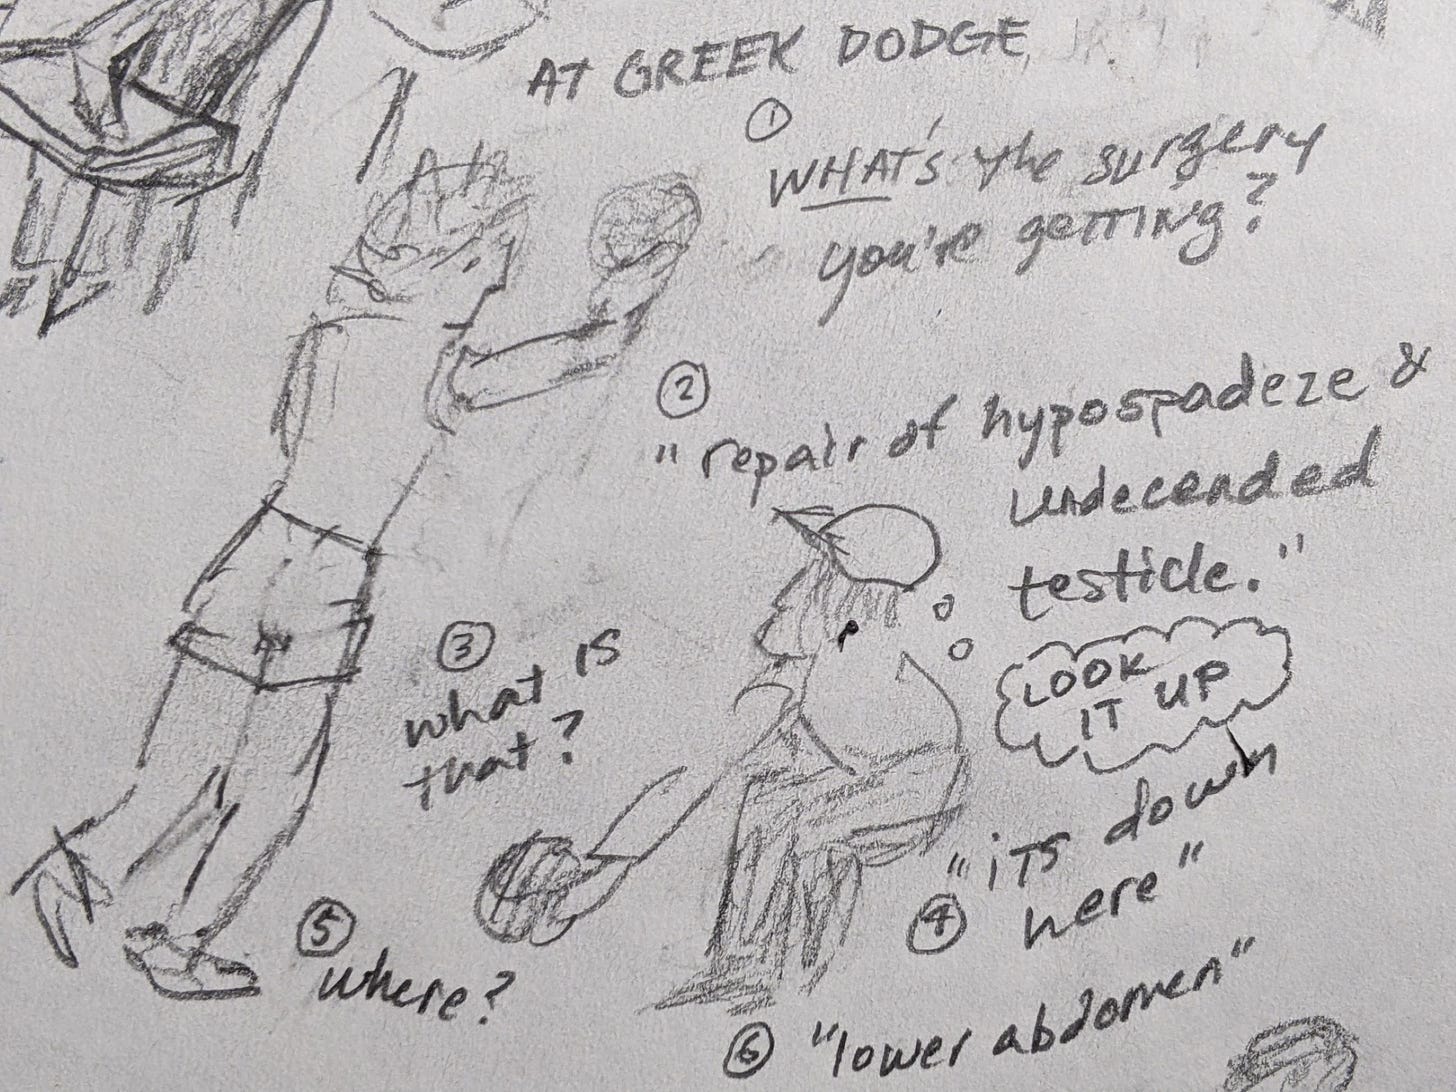 AT GREEK DODGE
①
WHAT'S the surgery
you're getting?
②
"repair of hypospadeze &
undecended
testicle."
LOOK
IT UP
③
what is
that?
④
"iTS down
here"
⑤
where?
⑥ "lower abdomen"